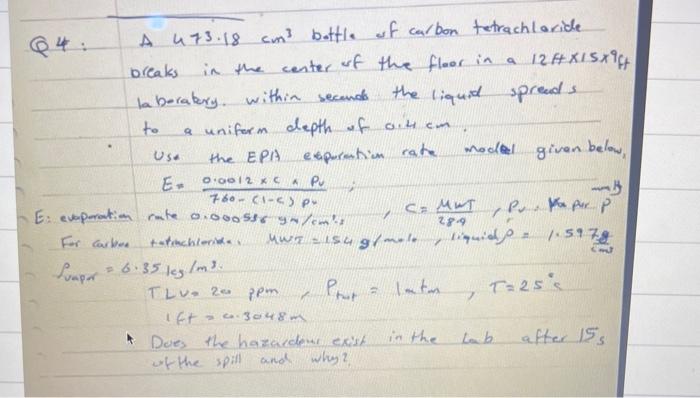 Q4: A 473.18 cm³ bottle of carbon tetrachloride
breaks in the center of the floor in a 12 ft X15 x 9ft
laboratory. within seconds the liquid spreads
to a uniform depth of 0.4 cm.
Use the EPA evaporation rate model given below,
E= 0.0012 x C x Pv / 760 - (1-C) Pv ;
E: evaporation rate gm/cm².s , C = MWT / 28.9 , Pv: P mmHg
For carbon tetrachloride, MWT = 154 g/mole, liquid ρ = 1.597 g/cm³
ρvapor = 6.35 kg/m³.
TLV = 20 ppm , Ptot = 1 atm , T=25°c
1 ft = 0.3048m
Does the hazardous exist in the Lab after 15s
of the spill and why?